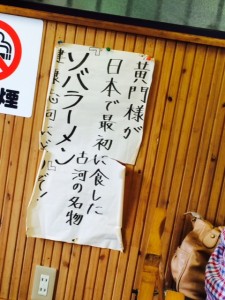 黄門様が
日本で最初に食した
古河の名物
『ソバラーメン』
煙